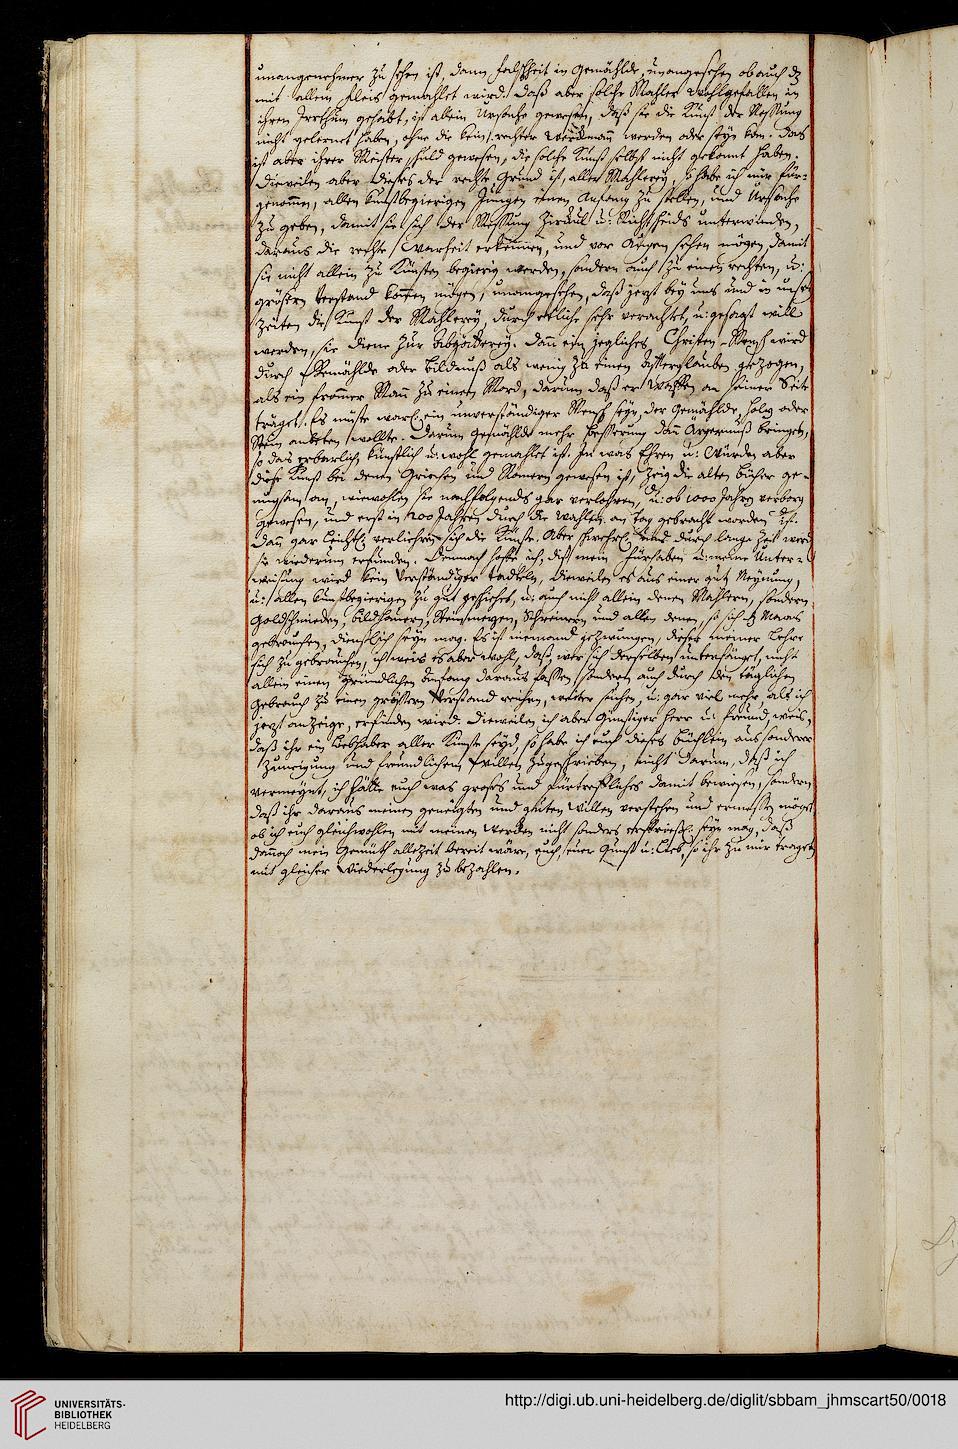 unangenehmer zu sehen ist, dann falschheit in Gemählde, unangesehen ob auch dz
mit allem fleis gemahlet wird. Daß aber solche Mahler Wohlgefallen in
ihren Irrthum gehabt, ist allein Ursache gewesen, daß sie die Kunst der Messung
nicht gelernet haben, ohne die kein rechter Werckmann werden oder seyn kan. Das
ist aber ihrer Meister schuld gewesen, die solche Kunst selbst nicht gekonnt haben.
Dieweilen aber dieses der rechte Grund ist, aller Mahlerey, so habe ich mir für-
genomen, allen kunstbegierigen Jungen einen Anfang zu stellen, und Ursache
zu geben, damit sie sich der Messung Zirckul u: Richtscheids unterwinden,
daraus die rechte Warheit erkennen, und vor Augen sehen mögen, damit
sie nicht allein zu Künsten begierig werden, sondern auch zu einen rechten, u:
grösern Verstand komen mögen, unangesehen, daß jezt bey uns und in unsern
Zeiten die Kunst der Mahlerey, durch etliche sehr verachtet, u: gesagt will
werden, sie diene zur Abgötterey. Dann ein jegliches Christen-Mensch wird
durch Gemählde oder Bildnuß als wenig zu einen Afterglauben gezogen,
als ein fromer Mann zu einen Mord, darum daß er Waffen an seiner Seite
träget. Es müste warl. ein unverständiger Mensch seyn, der Gemählde, Holz oder
Stein anbeten wollte. Darum Gemählde mehr Besserung dann Ärgernuß bringet,
so das erbarlich künstlich u: wohl gemahlet ist. In was Ehren u: Würden aber
diese Kunst bei denen Griechen und Römern gewesen ist, zeigen die alten Bücher ge-
nugsam an, wiewohlen sie nachfolgends gar verlohren, u: ob 1000 Jahren verborgen
gewesen, und erst in 200 Jahren durch die Wahlen an Tag gebracht worden ist.
Dann gar leichtl. verliehren sich die Künste. Aber schwerl. und durch lange Zeit werden
sie wiederum erfunden. Demnach hoffe ich, diß mein Fürhaben u: meine Unter-
weisung wird kein Verständiger tadeln, dieweilen es aus einer gut Meynung,
u: allen kunstbegierigen zu gut geschiehet, u: auch nicht allein denen Mahlern, sondern
Goldschmieden, Bildhauern, Steinmezen, Schreinern und allen denen, so sich dz Maas
gebrauchen, dienstlich seyn mag. Es ist niemand gezwungen, dieser meiner Lehre
sich zu gebrauchen, ich weis es aber wohl, daß, wer sich derselben unterfänget, nicht
allein einen gründlichen Anfang daraus fassen, sondern auch durch den täglichen
Gebrauch zu einen grössern Verstand reichen, weiter suchen, u: gar viel mehr, als ich
jezt anzeige, erfinden wird. Dieweilen ich aber günstiger Herr u: Freund, weis,
daß ihr ein Liebhaber aller Künste seyd, so habe ich euch dieses Büchlein aus sonderer
Zuneigung und freundlichen Willen zugeschrieben, nicht darum, daß ich
vermeynt, ich hätte euch was groses und fürtreffliches damit bewiesen, sondern
daß ihr daraus meinen geneigten und guten Willen verstehen und ermessen mögt
ob ich euch gleichwohlen mit meinen Werken nicht sonders erspriesl. seyn mag, daß
dannoch mein Gemüth allezeit bereit wäre, euch, eurer Gunst u: Lieb, so ihr zu mir traget,
mit gleicher Wiederlegung zu bezahlen.
UNIVERSITÄTS-
BIBLIOTHEK
HEIDELBERG
http://digi.ub.uni-heidelberg.de/diglit/sbbam_jhmscart50/0018